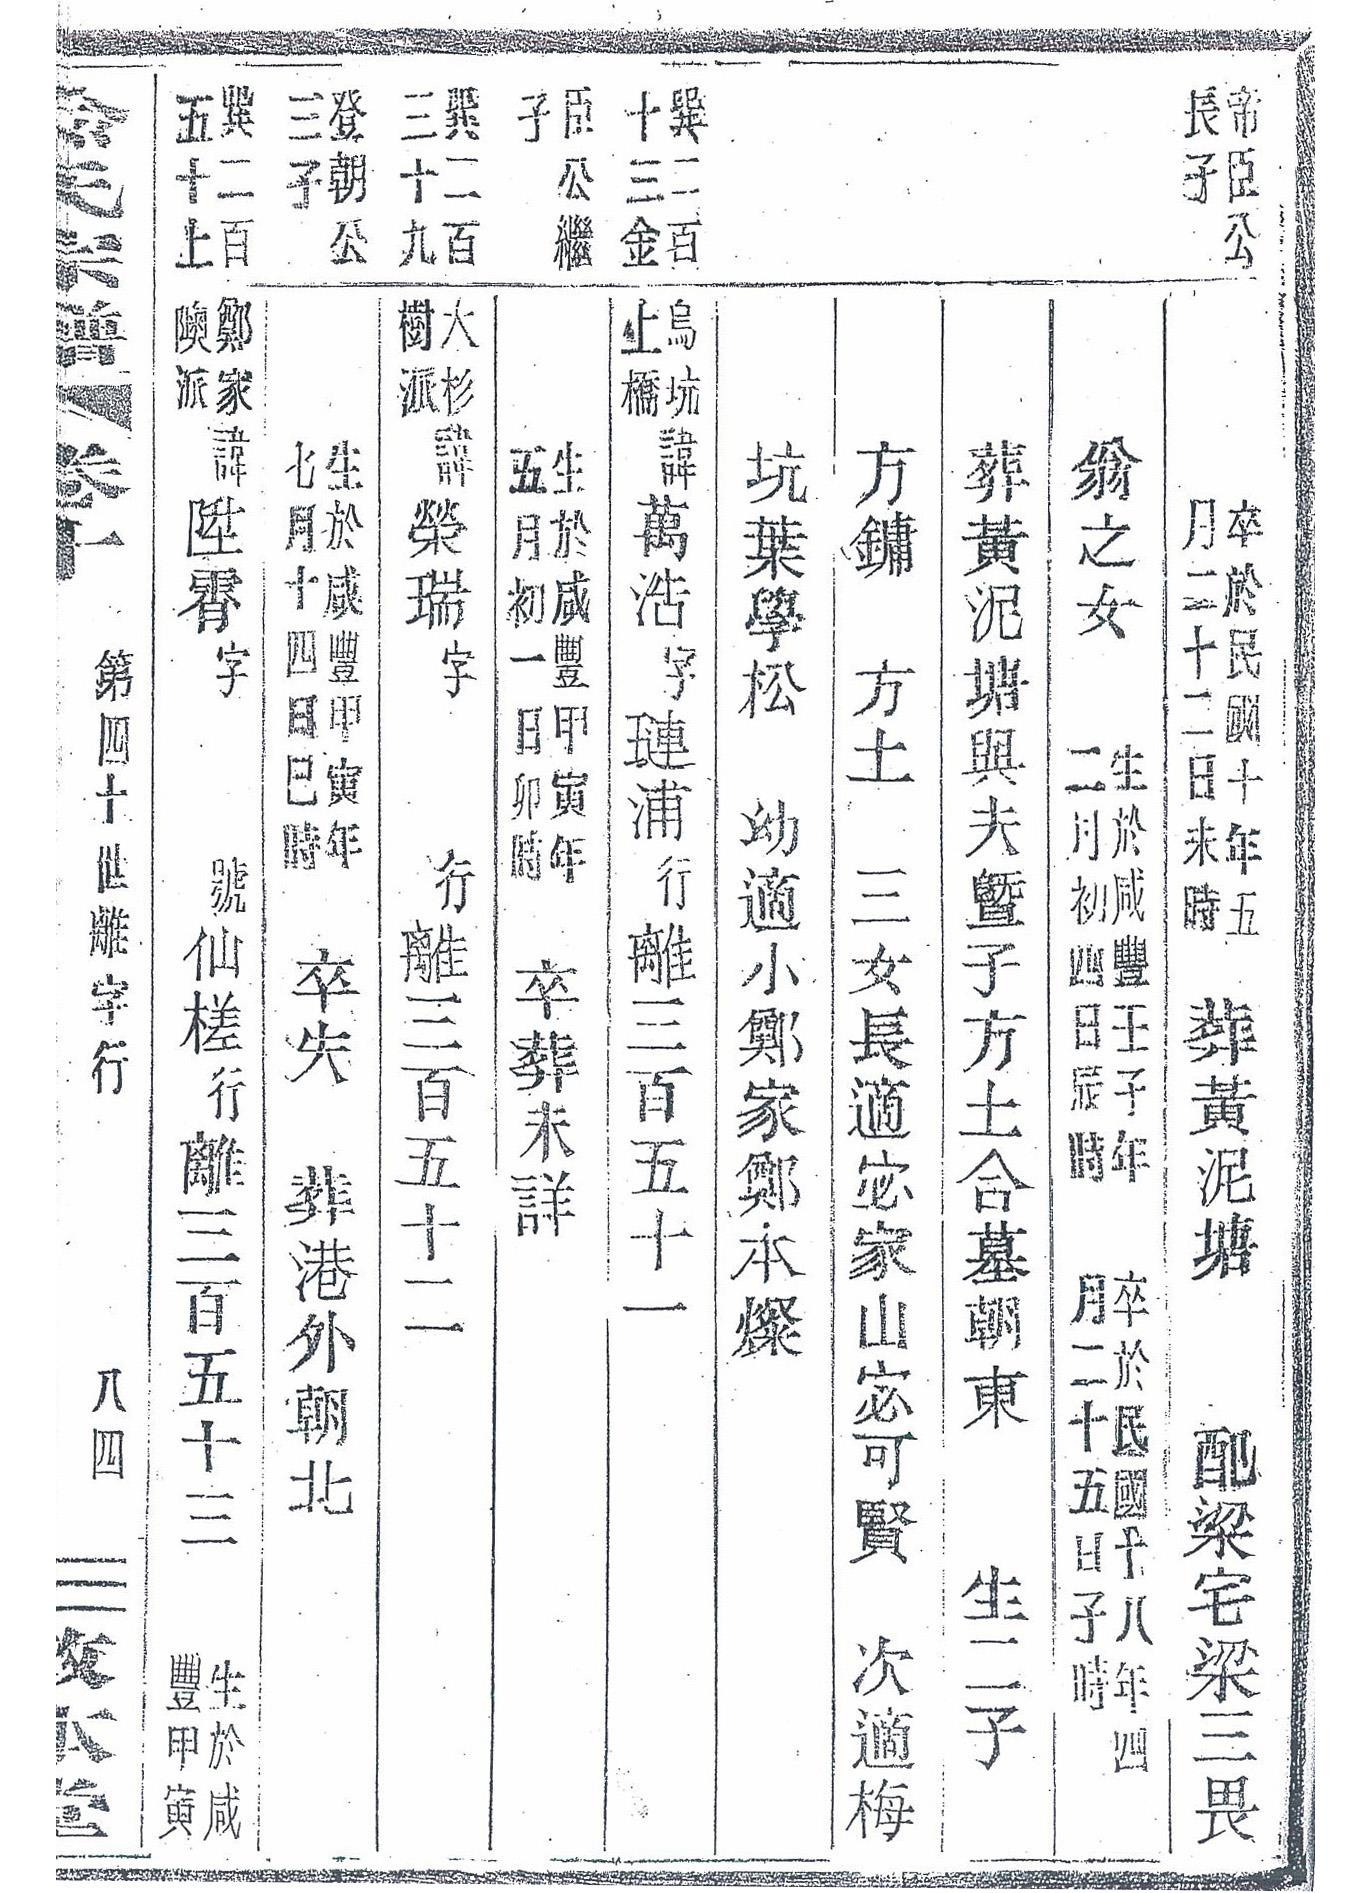 帝臣公
長子
卒於民國十年五
月二十二日未時
葬黃泥塘
配梁宅梁三畏
翁之女
生於咸豐壬子年
二月初四日辰時
卒於民國十八年四
月二十五日子時
葬黃泥塘與夫暨子方土合墓朝東
生二子
方鏞 方土 三女長適宓家山宓可賢 次適梅
坑葉學松 幼適小鄭家鄭本燦
巽二百
十三金
烏坑
上橋
諱萬浩字璉浦行離三百五十一
臣公繼
子
生於咸豐甲寅年
五月初一日卯時
卒葬未詳
巽二百
三十九
大杉
樹派
諱榮瑞字 行離三百五十二
登朝公
三子
生於咸豐甲寅年
七月十四日巳時
卒失 葬港外朝北
巽二百
五十上
鄭家
隩派
諱陞霄字 號仙槎行離三百五十三
生於咸
豐甲寅
氏宗譜 卷十一 第四十世離字行 八四 三敬堂